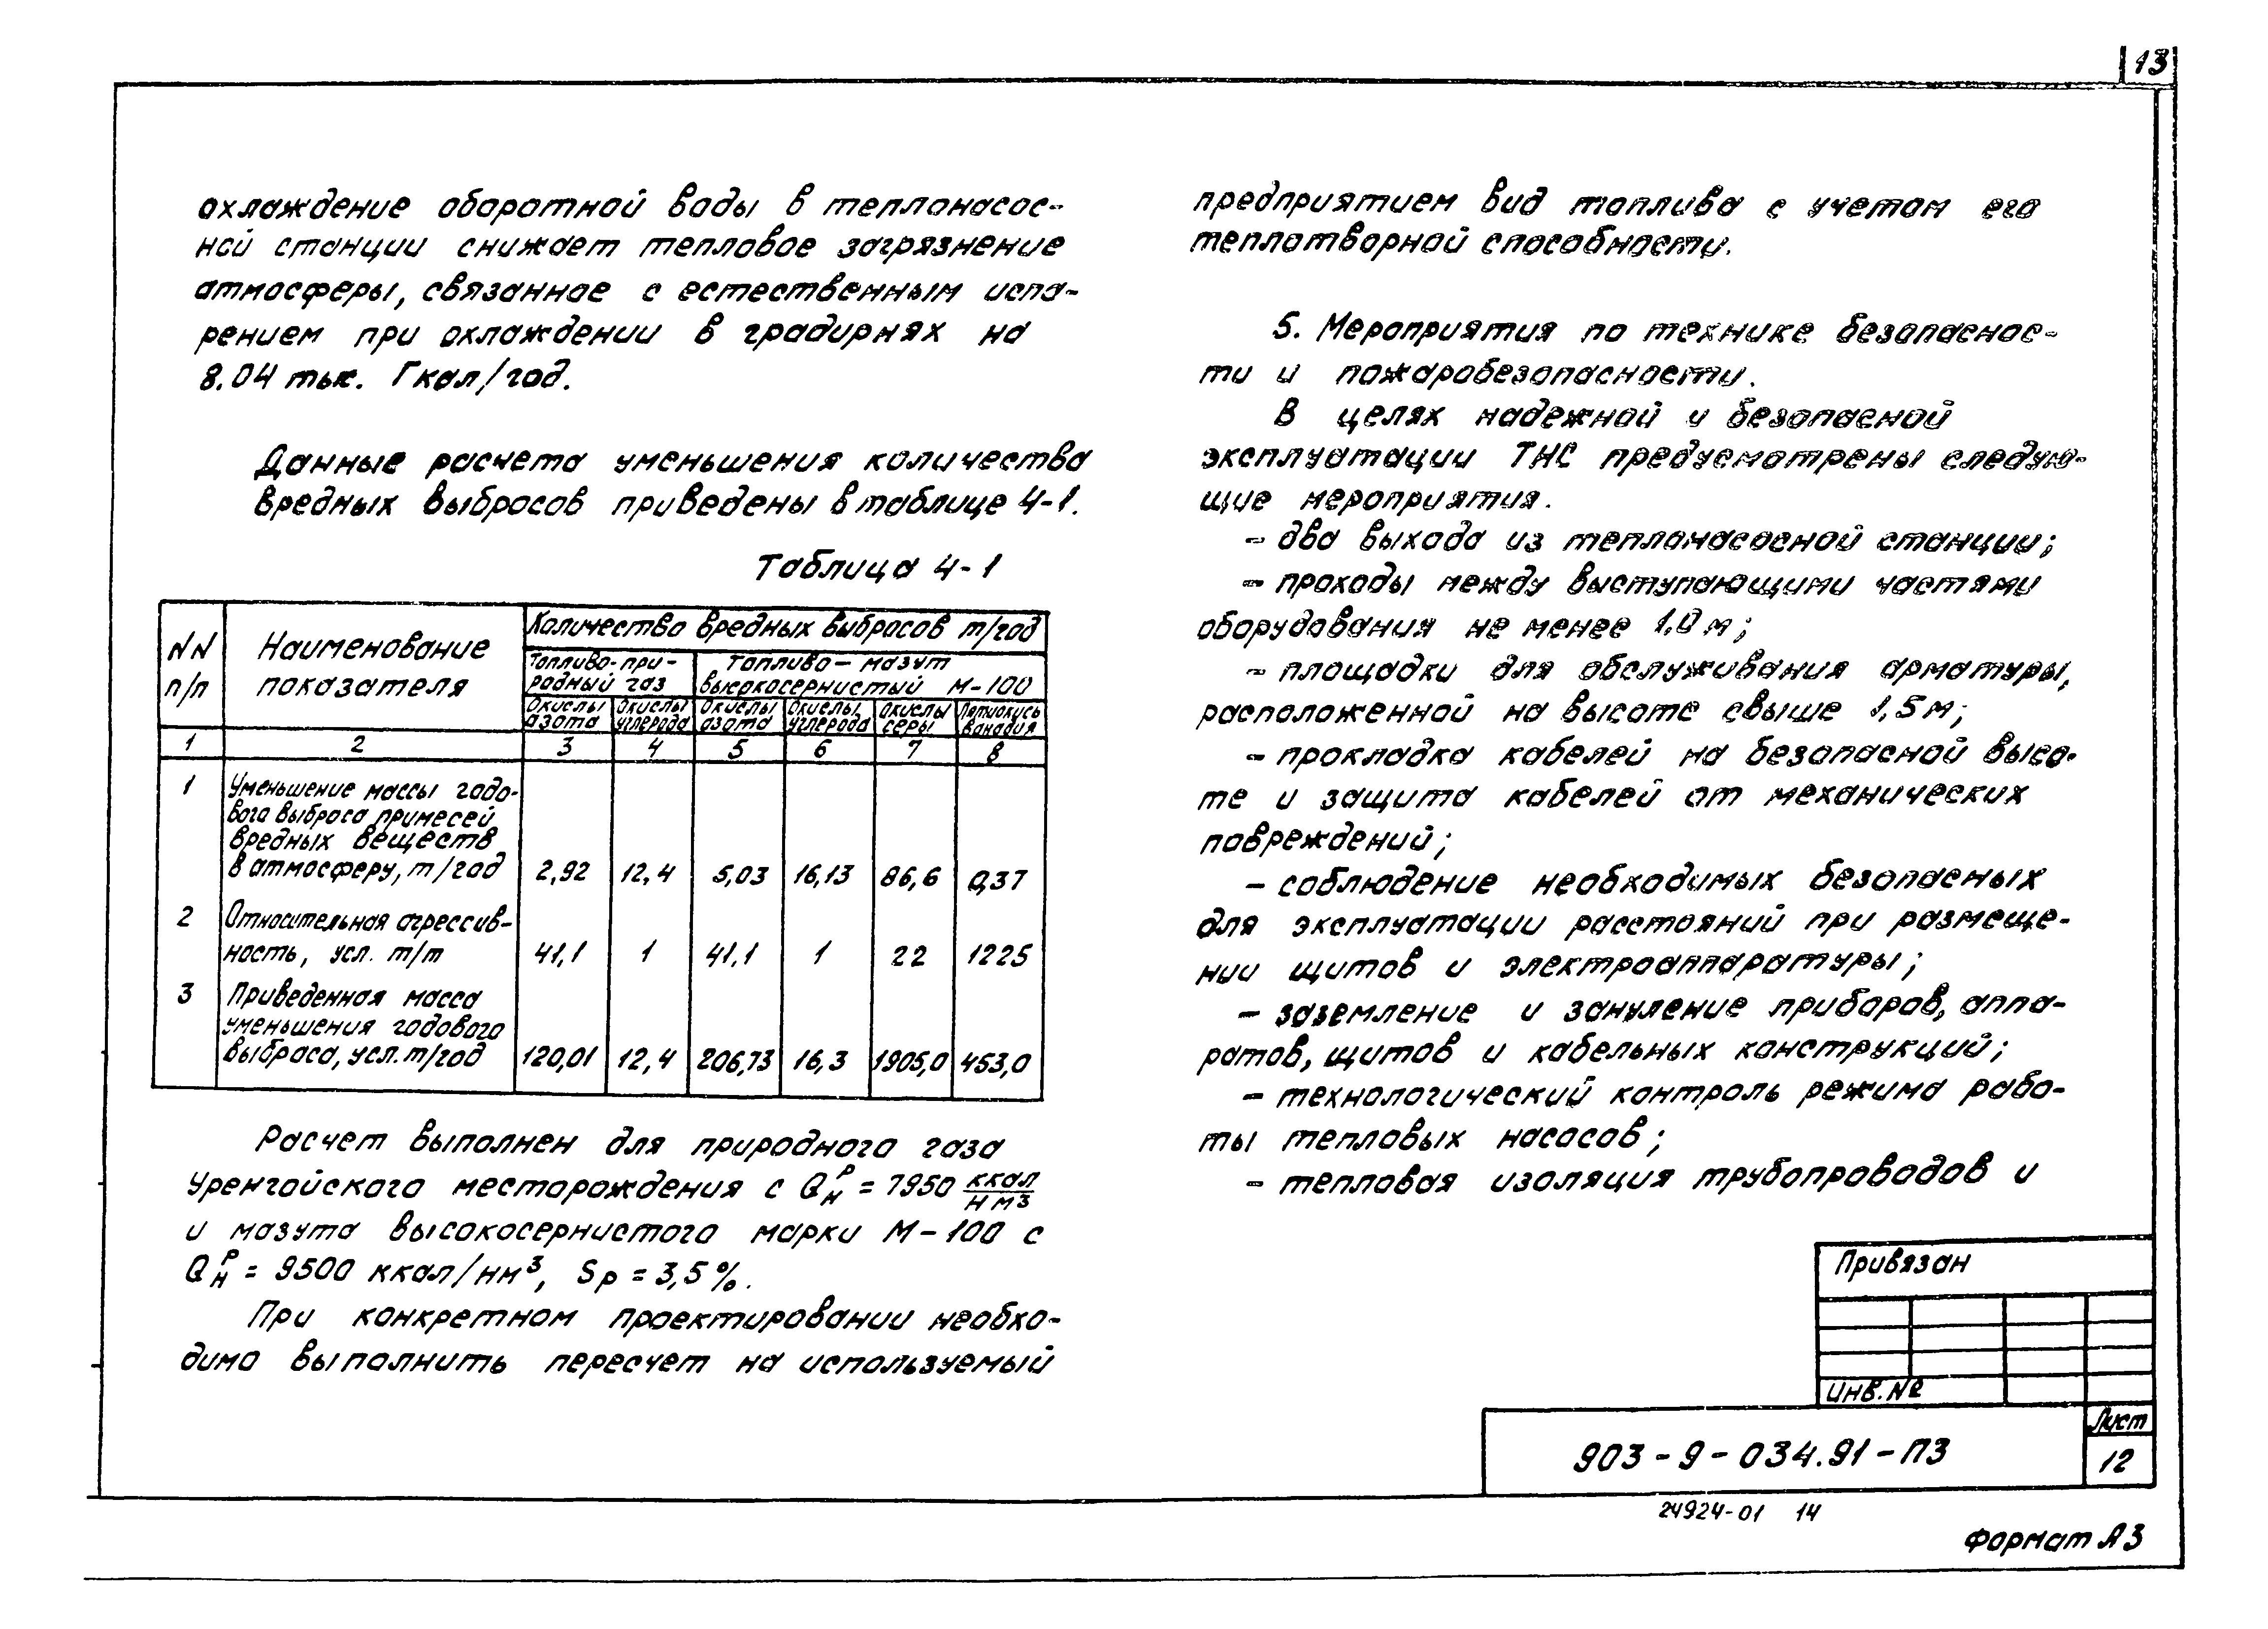 13
охлаждение оборотной воды в теплонасос-
ной станции снижает тепловое загрязнение
атмосферы, связанное с естественным испа-
рением при охлаждении в градирнях на
8,04 тыс. Гкал/год.
Данные расчета уменьшения количества
вредных выбросов приведены в таблице 4-1.
Таблица 4-1
NN п/п
Наименование показателя
Количество вредных выбросов т/год
Топливо-при-
родный газ
Топливо – мазут
высокосернистый М-100
Окислы азота
Окислы углерода
Окислы азота
Окислы углерода
Окислы серы
Пятиокись ванадия
1 2 3 4 5 6 7 8
1 Уменьшение массы годо-
вого выброса примесей
вредных веществ
в атмосферу, т/год 2,92 12,4 5,03 16,13 86,6 0,37
2 Относительная агрессив-
ность, усл. т/т 41,1 1 41,1 1 22 1225
3 Приведенная масса
уменьшения годового
выброса, усл. т/год 120,01 12,4 206,73 16,3 1905,0 453,0
Расчет выполнен для природного газа
Уренгойского месторождения с Qнᴾ = 7950 ккал/нм³
и мазута высокосернистого марки М-100 с
Qнᴾ = 9500 ккал/нм³, Sр = 3,5%.
При конкретном проектировании необхо-
димо выполнить пересчет на используемый
предприятием вид топлива с учетом его
теплотворной способности.
5. Мероприятия по технике безопаснос-
ти и пожаробезопасности.
В целях надежной и безопасной
эксплуатации ТНС предусмотрены следую-
щие мероприятия.
- два выхода из теплонасосной станции;
- проходы между выступающими частями
оборудования не менее 1,0 м;
- площадки для обслуживания арматуры,
расположенной на высоте свыше 1,5 м;
- прокладка кабелей на безопасной высо-
те и защита кабелей от механических
повреждений;
- соблюдение необходимых безопасных
для эксплуатации расстояний при размеще-
нии щитов и электроаппаратуры;
- заземление и зануление приборов, аппа-
ратов, щитов и кабельных конструкций;
- технологический контроль режима рабо-
ты тепловых насосов;
- тепловая изоляция трубопроводов и
Привязан
Инв. №
903-9-034.91-ПЗ
Лист
12
24924-01 14
Формат А3